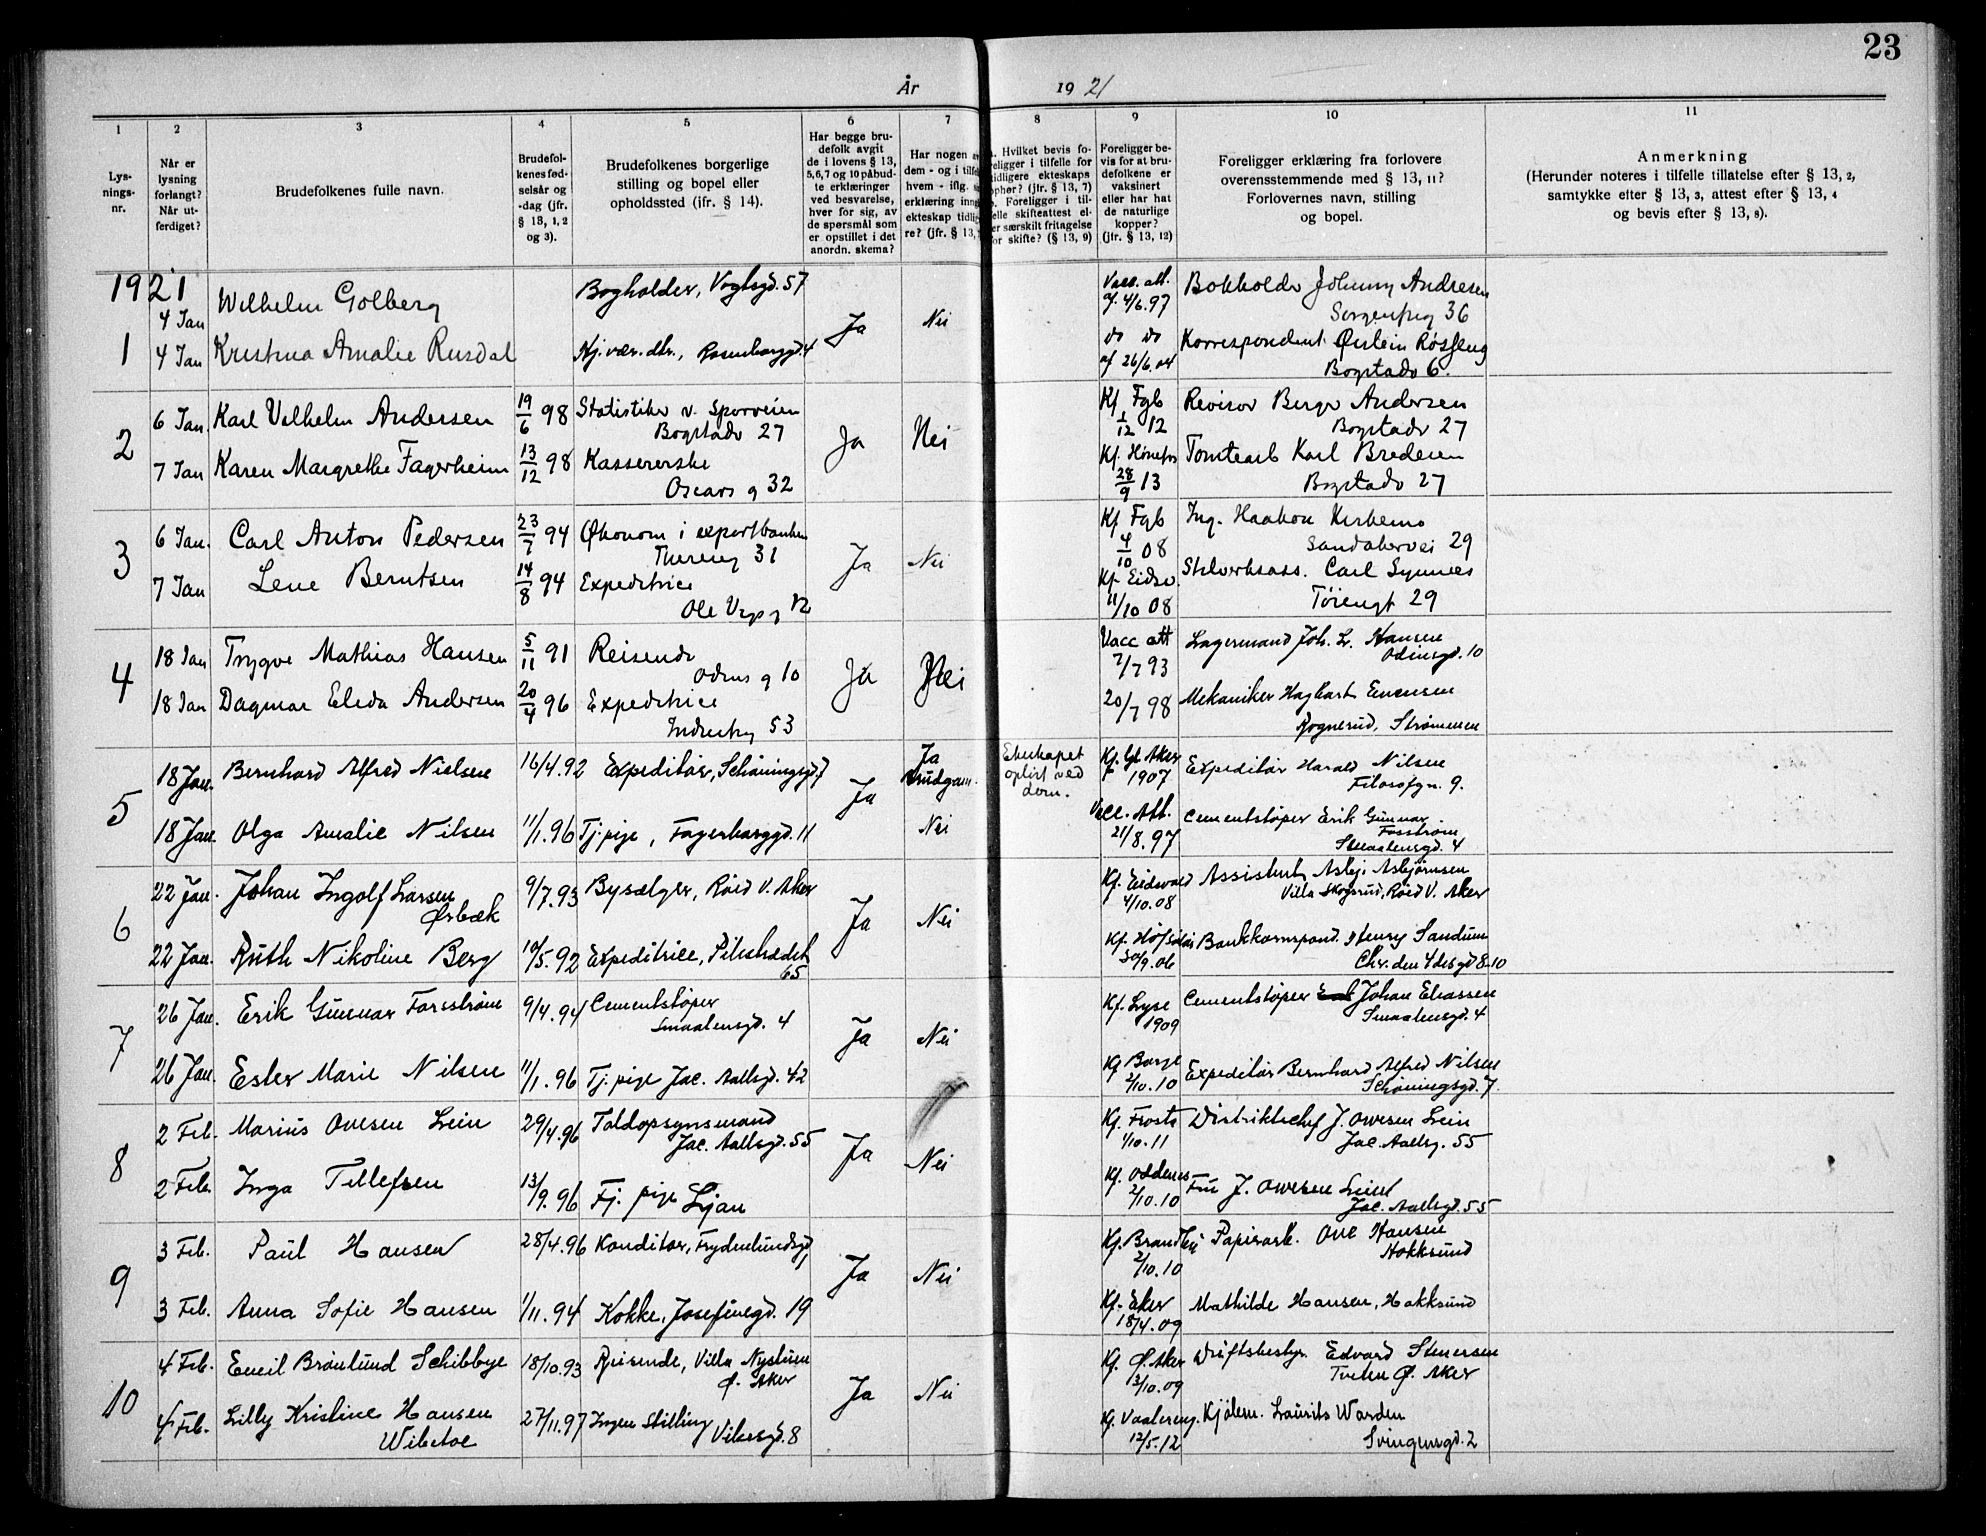 23
År 1921
1
2
3
4
5
6
7
8
9
10
11
Lys-
nings-
nr.
Når er
lysning
forlangt?
Når ut-
ferdiget?
Brudefolkenes fulle navn.
Brudefol-
kenes fød-
selsår og
-dag (jfr.
§ 13, 1, 2
og 3).
Brudefolkenes borgerlige
stilling og bopel eller
opholdssted (jfr. § 14).
Har begge bru-
defolk avgit
de i lovens § 13,
5,6,7 og 10 påbud-
te erklæringer
ved besvarelse,
hver for sig, av
de spørsmål som
er opstillet i det
anordn. skema?
Har nogen a
dem - og i tilf
hvem - iflg.
erklæring inng
ekteskap tidlig
re? (jfr. § 13,
Hvilket bevis fo-
religger i tilfelle for
tidligere ekteskaps
ophør? (jfr. § 13, 7)
Foreligger i til-
felle skifteattest el-
er særskilt fritagelse
for skifte? (§ 13, 9)
Foreligger be-
vis for at bru-
defolkene er
vaksinert
eller har hat
de naturlige
kopper?
(jfr. § 13, 12)
Foreligger erklæring fra forlovere
overensstemmende med § 13, 11?
Forlovernes navn, stilling
og bopel.
Anmerkning
(Herunder noteres i tilfelle tillatelse efter § 13, 2,
samtykke efter § 13, 3, attest efter § 13, 4
og bevis efter § 13, 8).
1921
1
4 Jan Wilhelm Golberg Bogholder, Vogtsgd. 57 Ja Nei Vacc. att. af 4/6.97 Bokholder Johnny Andresen
36
4 Jan Kristina Amalie Rusdal do do af 26/6.04 Korrespondent
Bogstadv 6.
2
6 Jan. Karl Vilhelm Andersen 19/6 98 Statistiker v. Sporveien Ja Nei Kf Fgb 1/12 12 Revisor Berge Andersen
Bogstadv 27 Bogstadv 27
7 Jan Karen Margrethe Fagerheim 13/12 98 Kassererske Kf. Hønefos 28/9 13 Tomtearb Karl Bredesen
Oscars g 32 Bogstadv 27
3
6 Jan. Carl Anton Pedersen 23/7 94 Økonom i exportbanken Ja Nei Kf Fgb 4/10 08 Ing. Haakon
31 Sandakervei 29
7 Jan Lene Berntsen 14/8 94 Expeditrice Kf. Eidsv. 11/10 08 Carl Synnes
Ole Vigs g 12 Tøiengt 29
4
18 Jan Trygve Mathias Hansen 5/11 91 Reisende Ja Nei Vacc att 7/7 93 Lagermand Joh. L. Hansen
Odins g 10 Odinsgd. 10
18 Jan Dagmar Elida Andersen 20/4 96 Expeditrice 20/7 98 Mekaniker Hagbart Evensen
Industrig 53 Rognerud, Strømmen
5
18 Jan. Bernhard Alfred Nielsen 16/4.92 Expeditør, Schøningsgd. 7 Ja Ja Brudgom Ekteskapet opløst ved dom. Kf. Gl. Aker 1907 Expeditør Harald Nilsen
Filosofgn. 9.
18 Jan. Olga Amalie Nilsen 11/1.96 Tj.pige, Fagerborggd. 11 Nei Vacc. Att. 21/8.97 Cementstøper Erik Gunnar
Forsstrøm
Smaalensgd. 4
6
22 Jan. Johan Ingolf Larsen 9/7.93 Bysælger, Røed V. Aker Ja Nei Kf. Eidsvold 4/10.08 Assistent Asbj. Asbjørnsen
Ørbæk Villa Skogsrud, Røed V. Aker
22 Jan. Ruth Nikoline Berg 10/5.92 Expeditrice, Pilestrædet 65 30/9.06 Bankkorrespond. Henry Sandum
Chr. den 4des gd 8-10
7
26 Jan. Erik Gunnar Forsstrøm 9/4.94 Cementstøper Ja Nei Kf. Lyse 1909 Cementstøper Johan Eliassen
Smaalensgd. 4 Smaalensgd. 4
26 Jan. Ester Marie Nilsen 11/1.96 Tj. pige Jac. Aallsgd. 42 Kf Borge 2/10.10 Expeditør Bernhard Alfred Nilsen
Schøningsgd. 7.
8
2 Feb. Marius Ovesen Lein 29/4.96 Toldopsynsmand Ja Nei Kf. Frosta 1/10.11 Distriktschef J. Ovesen Lein
Jac. Aallsgd. 55 Jac. Aallsg. 55
2 Feb. Inga Tellefsen 13/9.96 Tj. pige Ljan Kf. Oddernes 2/10.10 Fru J. Ovesen Lein
Jac. Aallsgd. 55
9
3 Feb. Paul Hansen 28/4.96 Konditor, Frydenlundsgd. Ja Nei Kf. Brandbu 2/10.10 Papirarb. Ove Hansen
Hokksund
3 Feb. Anna Sofie Hansen 1/11.94 Kokke, Josefinegd. 19 Kf. Eker 18/4.09 Mathilde Hansen, Hokksund
10
4 Feb. Emil Brønlund Schibbye 18/10.93 Reisende, Villa Nystuen Ja Nei Kf. Ø. Aker 3/10.09 Driftsbestyr. Edvard Stenersen
Ø. Aker Tveten Ø. Aker
4 Feb. Lilly Kristine Hansen 27/11.97 Ingen Stilling Kf. Vaalereng. 12/5.12 Kjølem. Laurits Warden
Wibetoe Vibesgd. 8 Svingensgd. 2